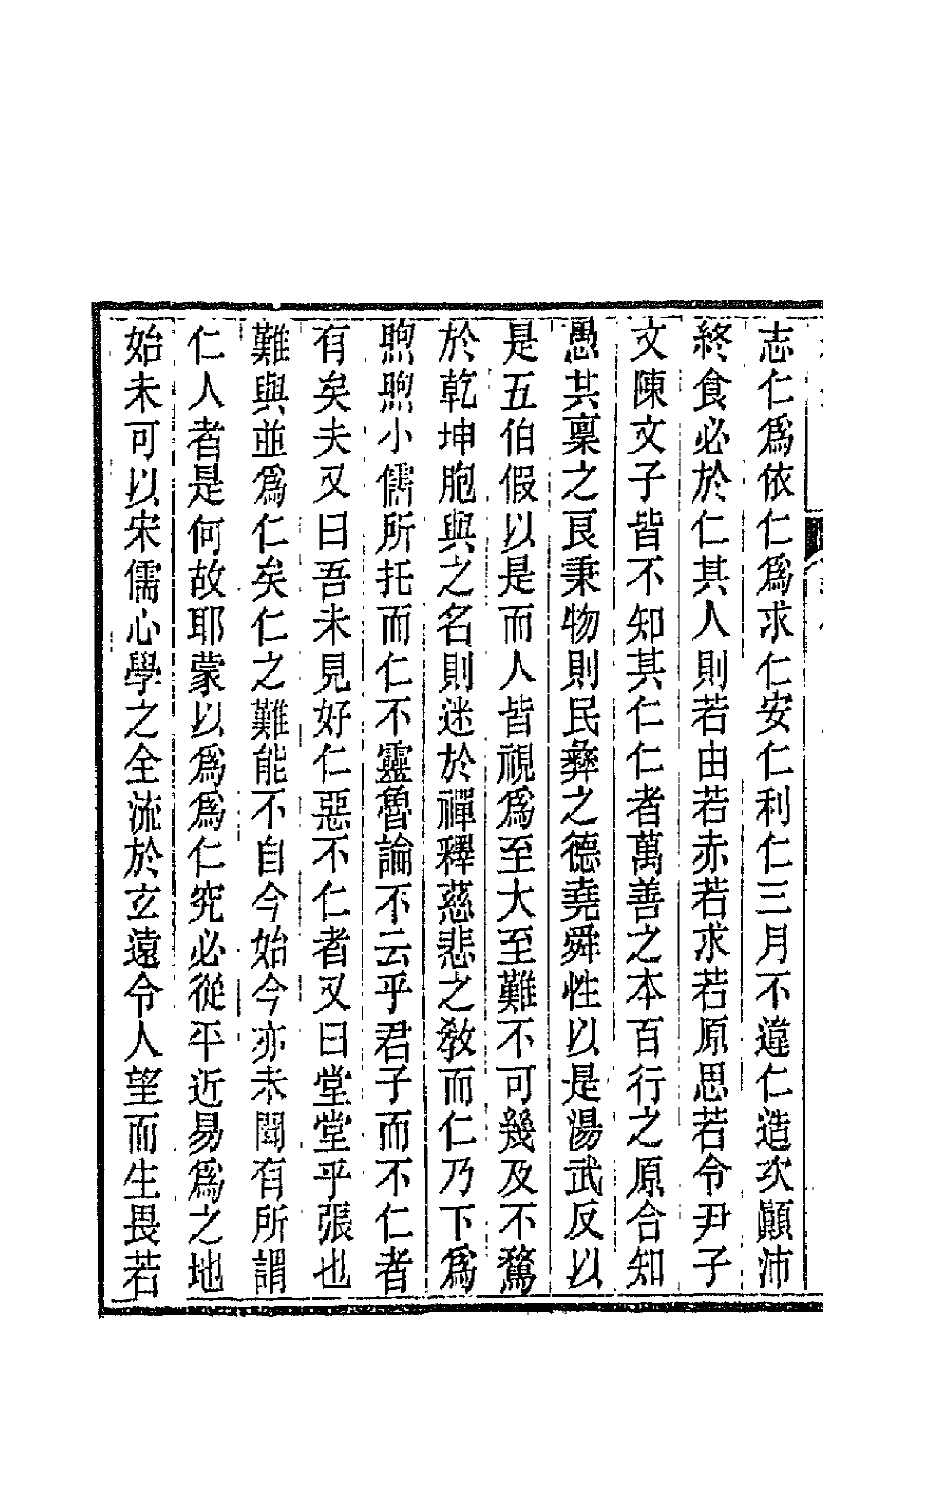 志仁爲依仁爲求仁安仁利仁三月不違仁造次顚沛
終食必於仁其人則若由若赤若求若原思若令尹子
文陳文子皆不知其仁仁者萬善之本百行之原合知
愚共稟之良秉物則民彝之德堯舜性以是湯武反以
是五伯假以是而人皆視爲至大至難不可幾及不騖
於乾坤胞與之名則迷於禪釋慈悲之敎而仁乃下爲
煦煦小儒所托而仁不靈魯論不云乎君子而不仁者
有矣夫又曰吾未見好仁惡不仁者又曰堂堂乎張也
難與並爲仁矣仁之難能不自今始今亦未聞有所謂
仁人者是何故耶蒙以爲爲仁究必從平近易爲之地
始未可以宋儒心學之全流於玄遠令人望而生畏若